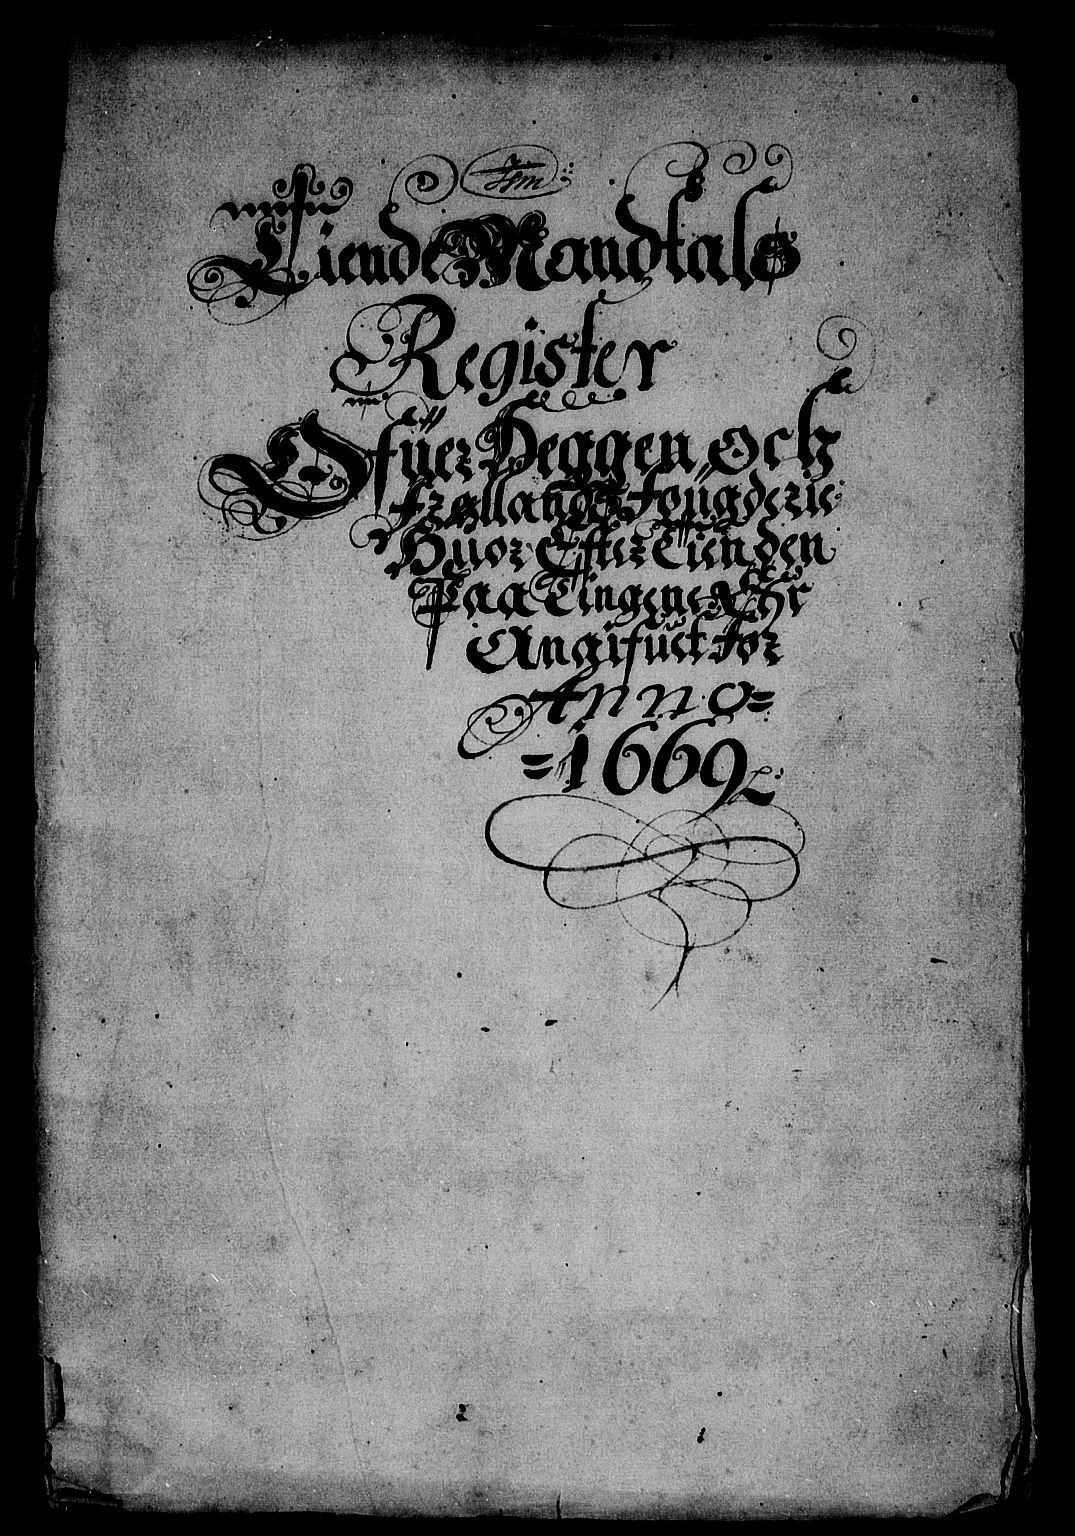 Tiende Mandtals
Register
Ofuer Heggen och
Frøllands Fougderie
Huor Effter Tienden
Paa Tingene Ehr
Angifuet for
Anno=
=1669